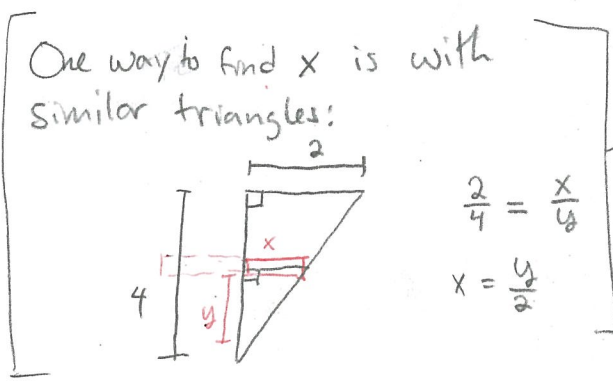 One way to find x is with
similar triangles:
2
x
4
y
2/4 = x/y
x = y/2